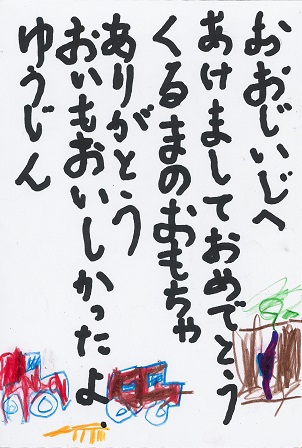 おおじいじへ
あけましておめでとう
くるまのおもちゃ
ありがとう
おいもおいしかったよ.
ゆうじん